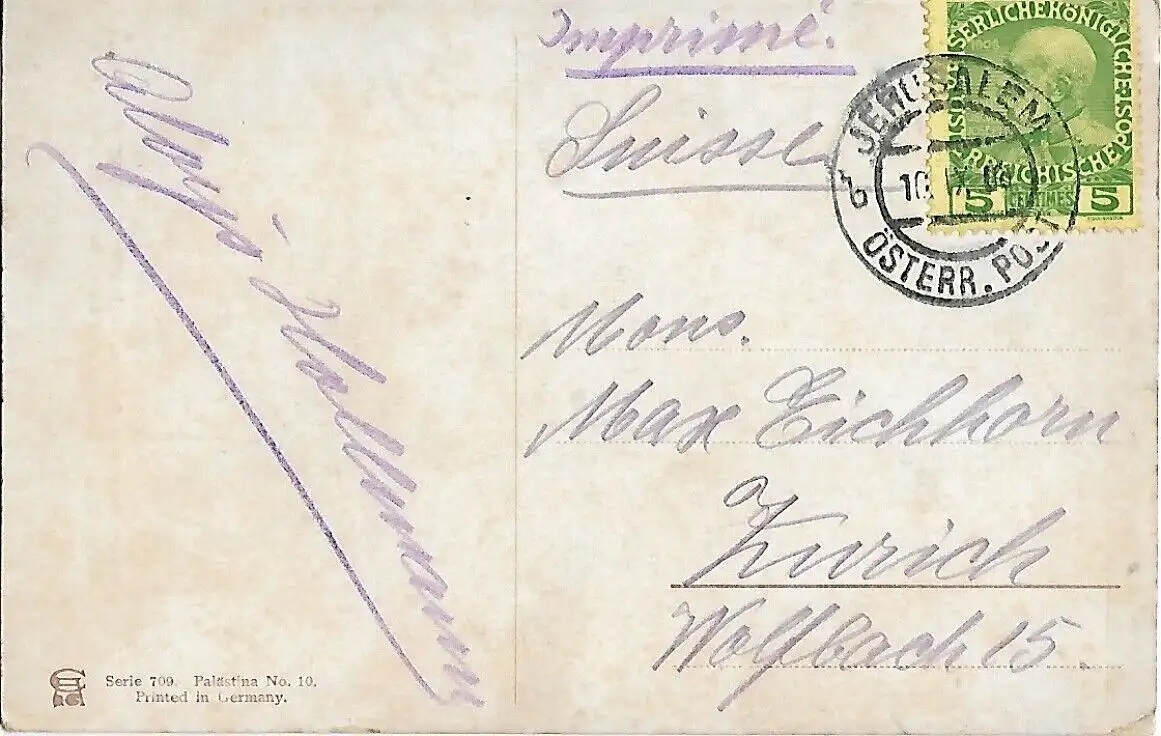 Imprimé.
Suisse
KAISERLICHE KÖNIGLICHE
ÖSTERREICHISCHE POST
1908
5 CENTIMES 5
JERUSALEM
b
ÖSTERR. POST
Mons.
Max Eichhorn
Zurich
Wolfbach 15.
Aloys Hallmann
Serie 709. Palästina No. 10.
Printed in Germany.